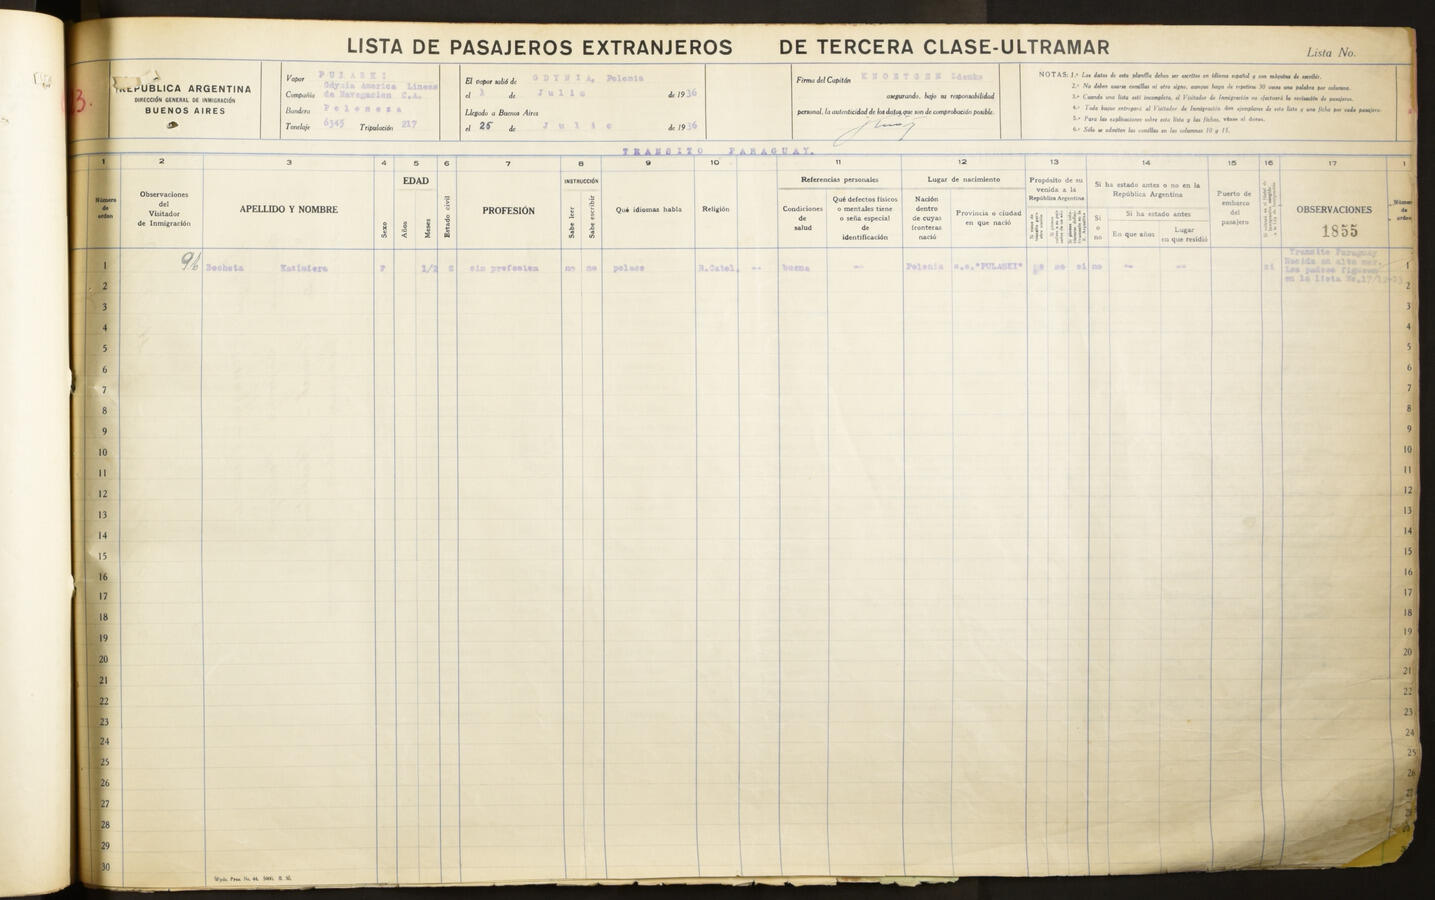 LISTA DE PASAJEROS EXTRANJEROS DE TERCERA CLASE-ULTRAMAR
Lista No.
REPÚBLICA ARGENTINA
DIRECCIÓN GENERAL DE INMIGRACIÓN
BUENOS AIRES
Vapor PULASKI
Compañía Gdynia America Lineas
de Navegacion C.A.
Bandera Polonesa
Tonelaje 6345 Tripulación 217
El vapor salió de GDYNIA, Polonia
el de Julio de 1936
Llegado a Buenos Aire
el 25 de Julio de 1936
Firma del Capitán KNOETGEN Zdenko
asegurando, bajo su responsabilidad
personal, la autenticidad de los datos que son de comprobación posible.
NOTAS: 1.ª Los datos de esta planilla deben ser escritos en idioma español y con máquina de escribir.
2.ª No deben usarse comillas ni otro signo, aunque haya de repetirse 30 veces una palabra por columna.
3.ª Cuando una lista esté incompleta, el Visitador de Inmigración no efectuará la revisación de pasajeros.
4.ª Todo buque entregará al Visitador de Inmigración dos ejemplares de esta lista y una ficha por cada pasajero.
5.ª Para las explicaciones sobre esta lista y las fichas, véase al dorso.
6.ª Sólo se admiten las comillas en las columnas 10 y 15.
TRANSITO PARAGUAY.
1 2 3 4 5 6 7 8 9 10 11 12 13 14 15 16 17 1
Número de orden
Observaciones del Visitador de Inmigración
APELLIDO Y NOMBRE
Sexo
EDAD
Años
Meses
Estado civil
PROFESIÓN
INSTRUCCIÓN
Sabe leer
Sabe escribir
Qué idiomas habla
Religión
Referencias personales
Condiciones de salud
Qué defectos físicos o mentales tiene o seña especial de identificación
Lugar de nacimiento
Nación dentro de cuyas fronteras nació
Provincia o ciudad en que nació
Propósito de su venida a la República Argentina
Si ha estado antes o no en la República Argentina
Si o no
Si ha estado antes
En que años
Lugar en que residió
Puerto de embarco del pasajero
OBSERVACIONES
1855
Número de orden
1 96 Kazimiera F 1/2 S sin profesion no no polaco R.Catol. -- buena -- Polonia s.s."PULASKI" no no si no -- -- si Transito Paraguay 1
Nacida en alta mar.
Los padres figuran
2 en la lista No.17/12-13 2
3 3
4 4
5 5
6 6
7 7
8 8
9 9
10 10
11 11
12 12
13 13
14 14
15 15
16 16
17 17
18 18
19 19
20 20
21 21
22 22
23 23
24 24
25 25
26 26
27
28
29
30